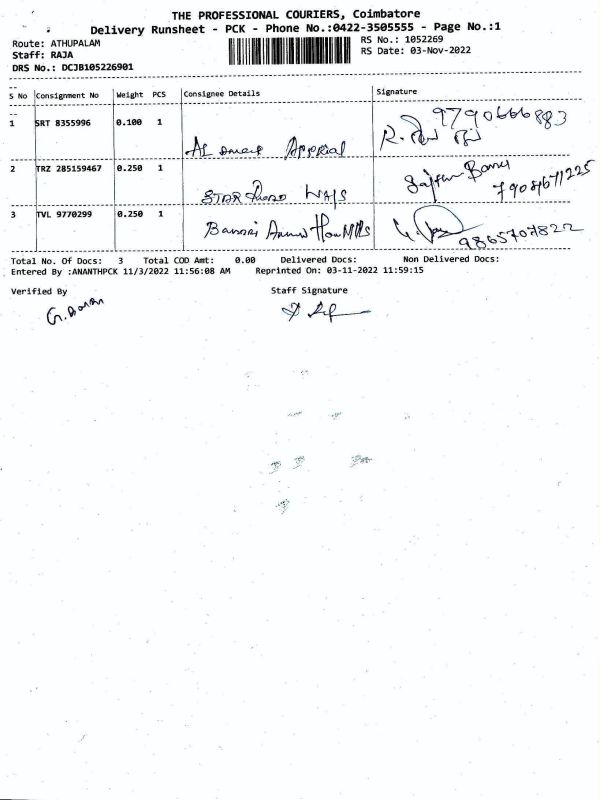 THE PROFESSIONAL COURIERS, Coimbatore
Delivery Runsheet - PCK - Phone No.:0422-3505555 - Page No.:1
Route: ATHUPALAM
Staff: RAJA
DRS No.: DCJB105226901
RS No.: 1052269
RS Date: 03-Nov-2022
S No Consignment No Weight PCS Consignee Details Signature
1 SRT 8355996 0.100 1
9790666883
AL
2 TRZ 285159467 0.250 1
STAR
7904671225
3 TVL 9770299 0.250 1
Bannari Amman
9865707822
Total No. Of Docs: 3 Total COD Amt: 0.00 Delivered Docs: Non Delivered Docs:
Entered By :ANANTHPCK 11/3/2022 11:56:08 AM Reprinted On: 03-11-2022 11:59:15
Verified By Staff Signature